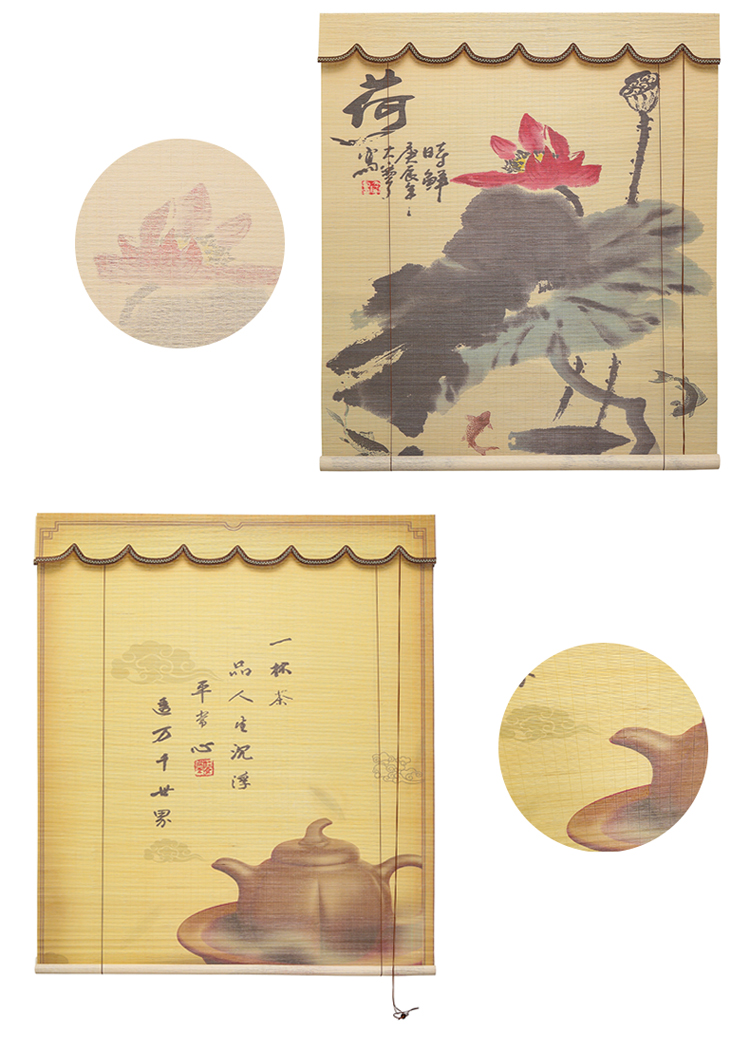 荷
時鮮
庚辰年
一杯茶
品人生沉浮
平常心
造万千世界